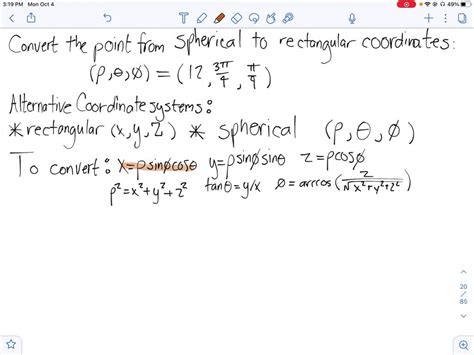 3:19 PM Mon Oct 4
49%
Convert the point from spherical to rectangular coordinates:
(ρ, θ, φ) = (12, 3π/4, π/9)
Alternative Coordinate systems:
* rectangular (x, y, z) * spherical (ρ, θ, φ)
To convert: x=ρsinφcosθ y=ρsinφsinθ z=ρcosφ
ρ²=x²+y²+z² tanθ=y/x φ=arccos(z/√x²+y²+z²)
20
/
85